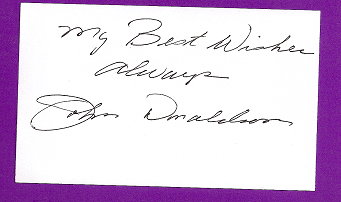 My Best Wishes
Always
John Donaldson